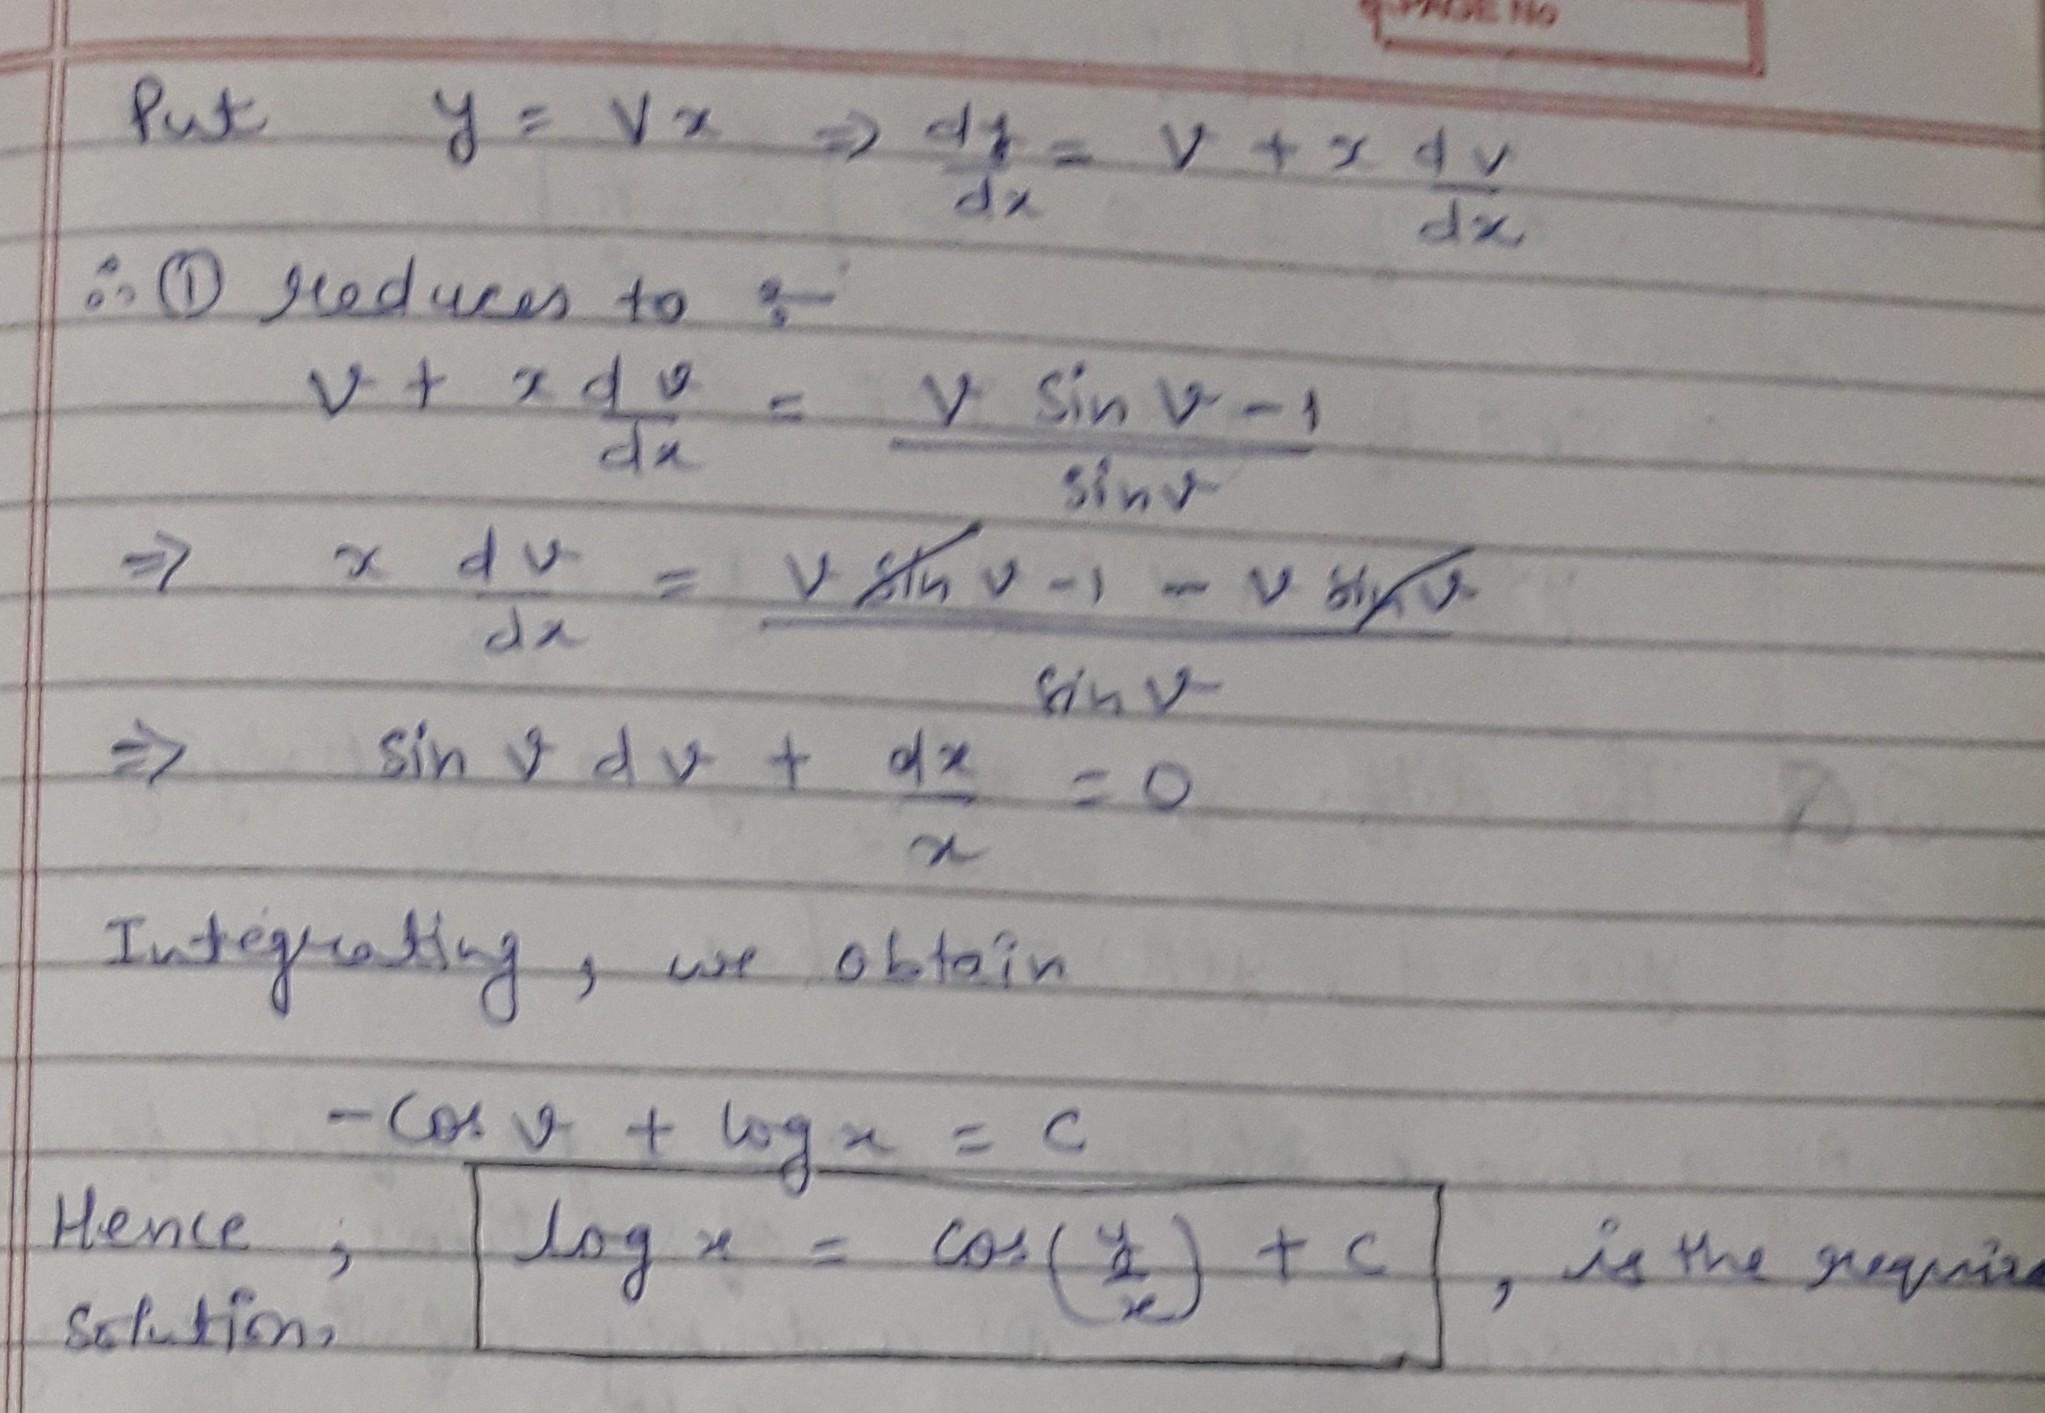 PAGE No
Put y = vx ⇒ dy/dx = v + x dv/dx
∴ ① reduces to :-
v + x dv/dx = (v sin v - 1)/sin v
⇒ x dv/dx = (v sin v - 1 - v sin v)/sin v
⇒ sin v dv + dx/x = 0
Integrating, we obtain
- cos v + log x = c
Hence, log x = cos(y/x) + c, is the
solution.